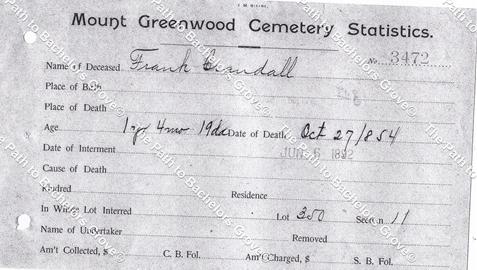 Mount Greenwood Cemetery Statistics.
No. 3472
Name of Deceased Frank Crandall
Place of Birth
Place of Death
Age 1 yr 4 mo 19 da Date of Death Oct 27/854
Date of Interment JUN 6 1892
Cause of Death
Kindred Residence
In Whose Lot Interred Lot 350 Section 11
Name of Undertaker Removed
Am't Collected, $ C. B. Fol. Am't Charged, $ S. B. Fol.
The Path to Bachelors Grove©